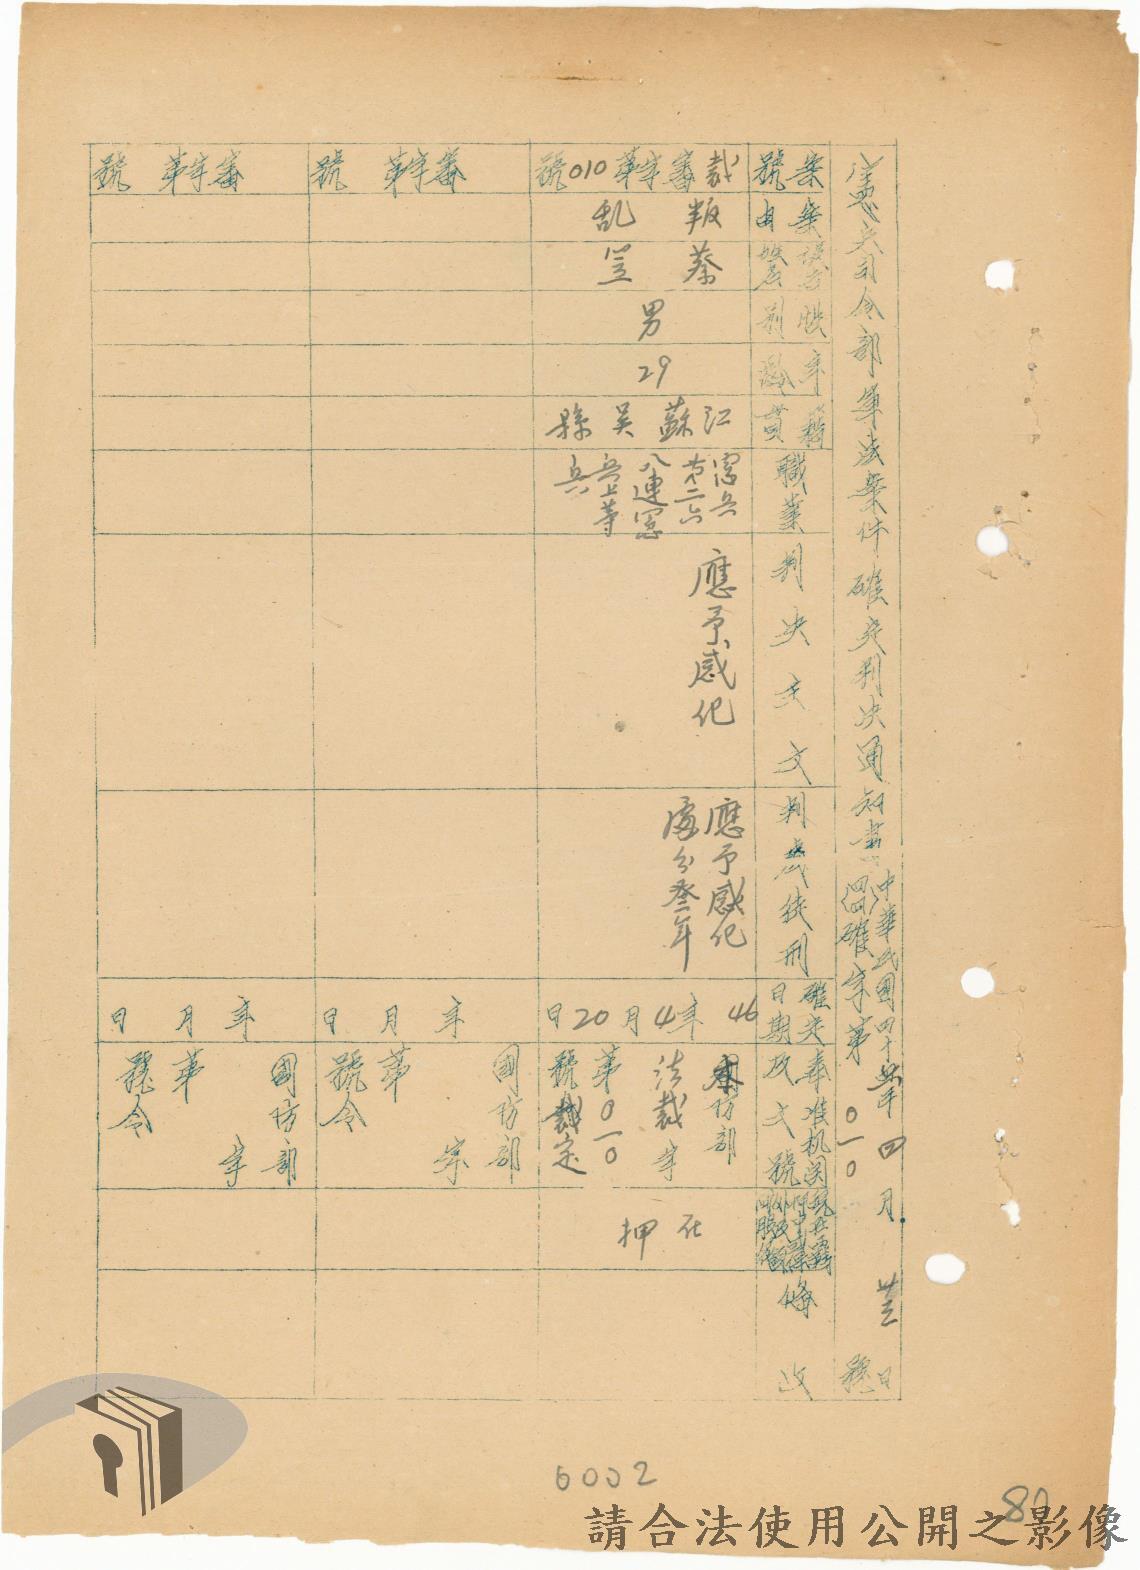 憲兵司令部軍法案件確定判決通知書
中華民國四十 年四月 日
確字第010號
案號
案由
被告姓名
性別
年齡
籍貫
職業
判決主文
判處徒刑
確定日期
奉准机関及文號
備攷
裁審字第010號
叛乱
蔡
男
29
江蘇吳縣
憲兵第二六
八連憲
兵上等
兵
應予感化
應予感化
處分叁年
46年4月20日
本部
法裁字
第010
號裁定
在押
審字第 號
年 月 日
國防部
字
第
號令
審字第 號
年 月 日
國防部
字
第
號令
6002
80
請合法使用公開之影像